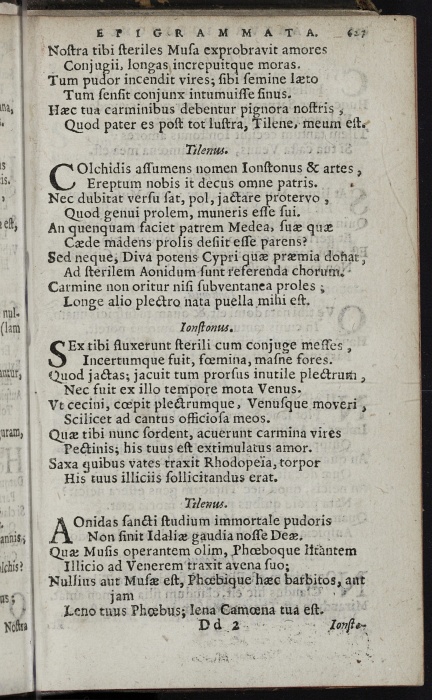 EPIGRAMMATA. 627
Nostra tibi steriles Musa exprobravit amores
Conjugii, longas increpuitque moras.
Tum pudor incendit vires; sibi semine læto
Tum sensit conjunx intumuisse sinus.
Hæc tua carminibus debentur pignora nostris,
Quod pater es post tot lustra, Tilene, meum est.
Tilenus.
COlchidis assumens nomen Ionstonus & artes,
Ereptum nobis it decus omne patris.
Nec dubitat versu sat, pol, jactare protervo,
Quod genui prolem, muneris esse sui.
An quenquam faciet patrem Medea, suæ quæ
Cæde madens prolis desiit esse parens?
Sed neque, Diva potens Cypri quæ præmia donat,
Ad sterilem Aonidum sunt referenda chorum.
Carmine non oritur nisi subventanea proles;
Longe alio plectro nata puella mihi est.
Ionstonus.
SEx tibi fluxerunt sterili cum conjuge messes,
Incertumque fuit, fœmina, masne fores.
Quod jactas; jacuit tum prorsus inutile plectrum,
Nec fuit ex illo tempore mota Venus.
Vt cecini, cœpit plectrumque, Venusque moveri,
Scilicet ad cantus officiosa meos.
Quæ tibi nunc sordent, acuerunt carmina vires
Pectinis; his tuus est extimulatus amor.
Saxa quibus vates traxit Rhodopeïa, torpor
His tuus illiciis sollicitandus erat.
Tilenus.
AOnidas sancti studium immortale pudoris
Non sinit Idaliæ gaudia nosse Deæ.
Quæ Musis operantem olim, Phœboque litantem
Illicio ad Venerem traxit avena suo;
Nullius aut Musæ est, Phœbique hæc barbitos, aut
jam
Leno tuus Phœbus; lena Camœna tua est.
Dd 2 Ionsto-